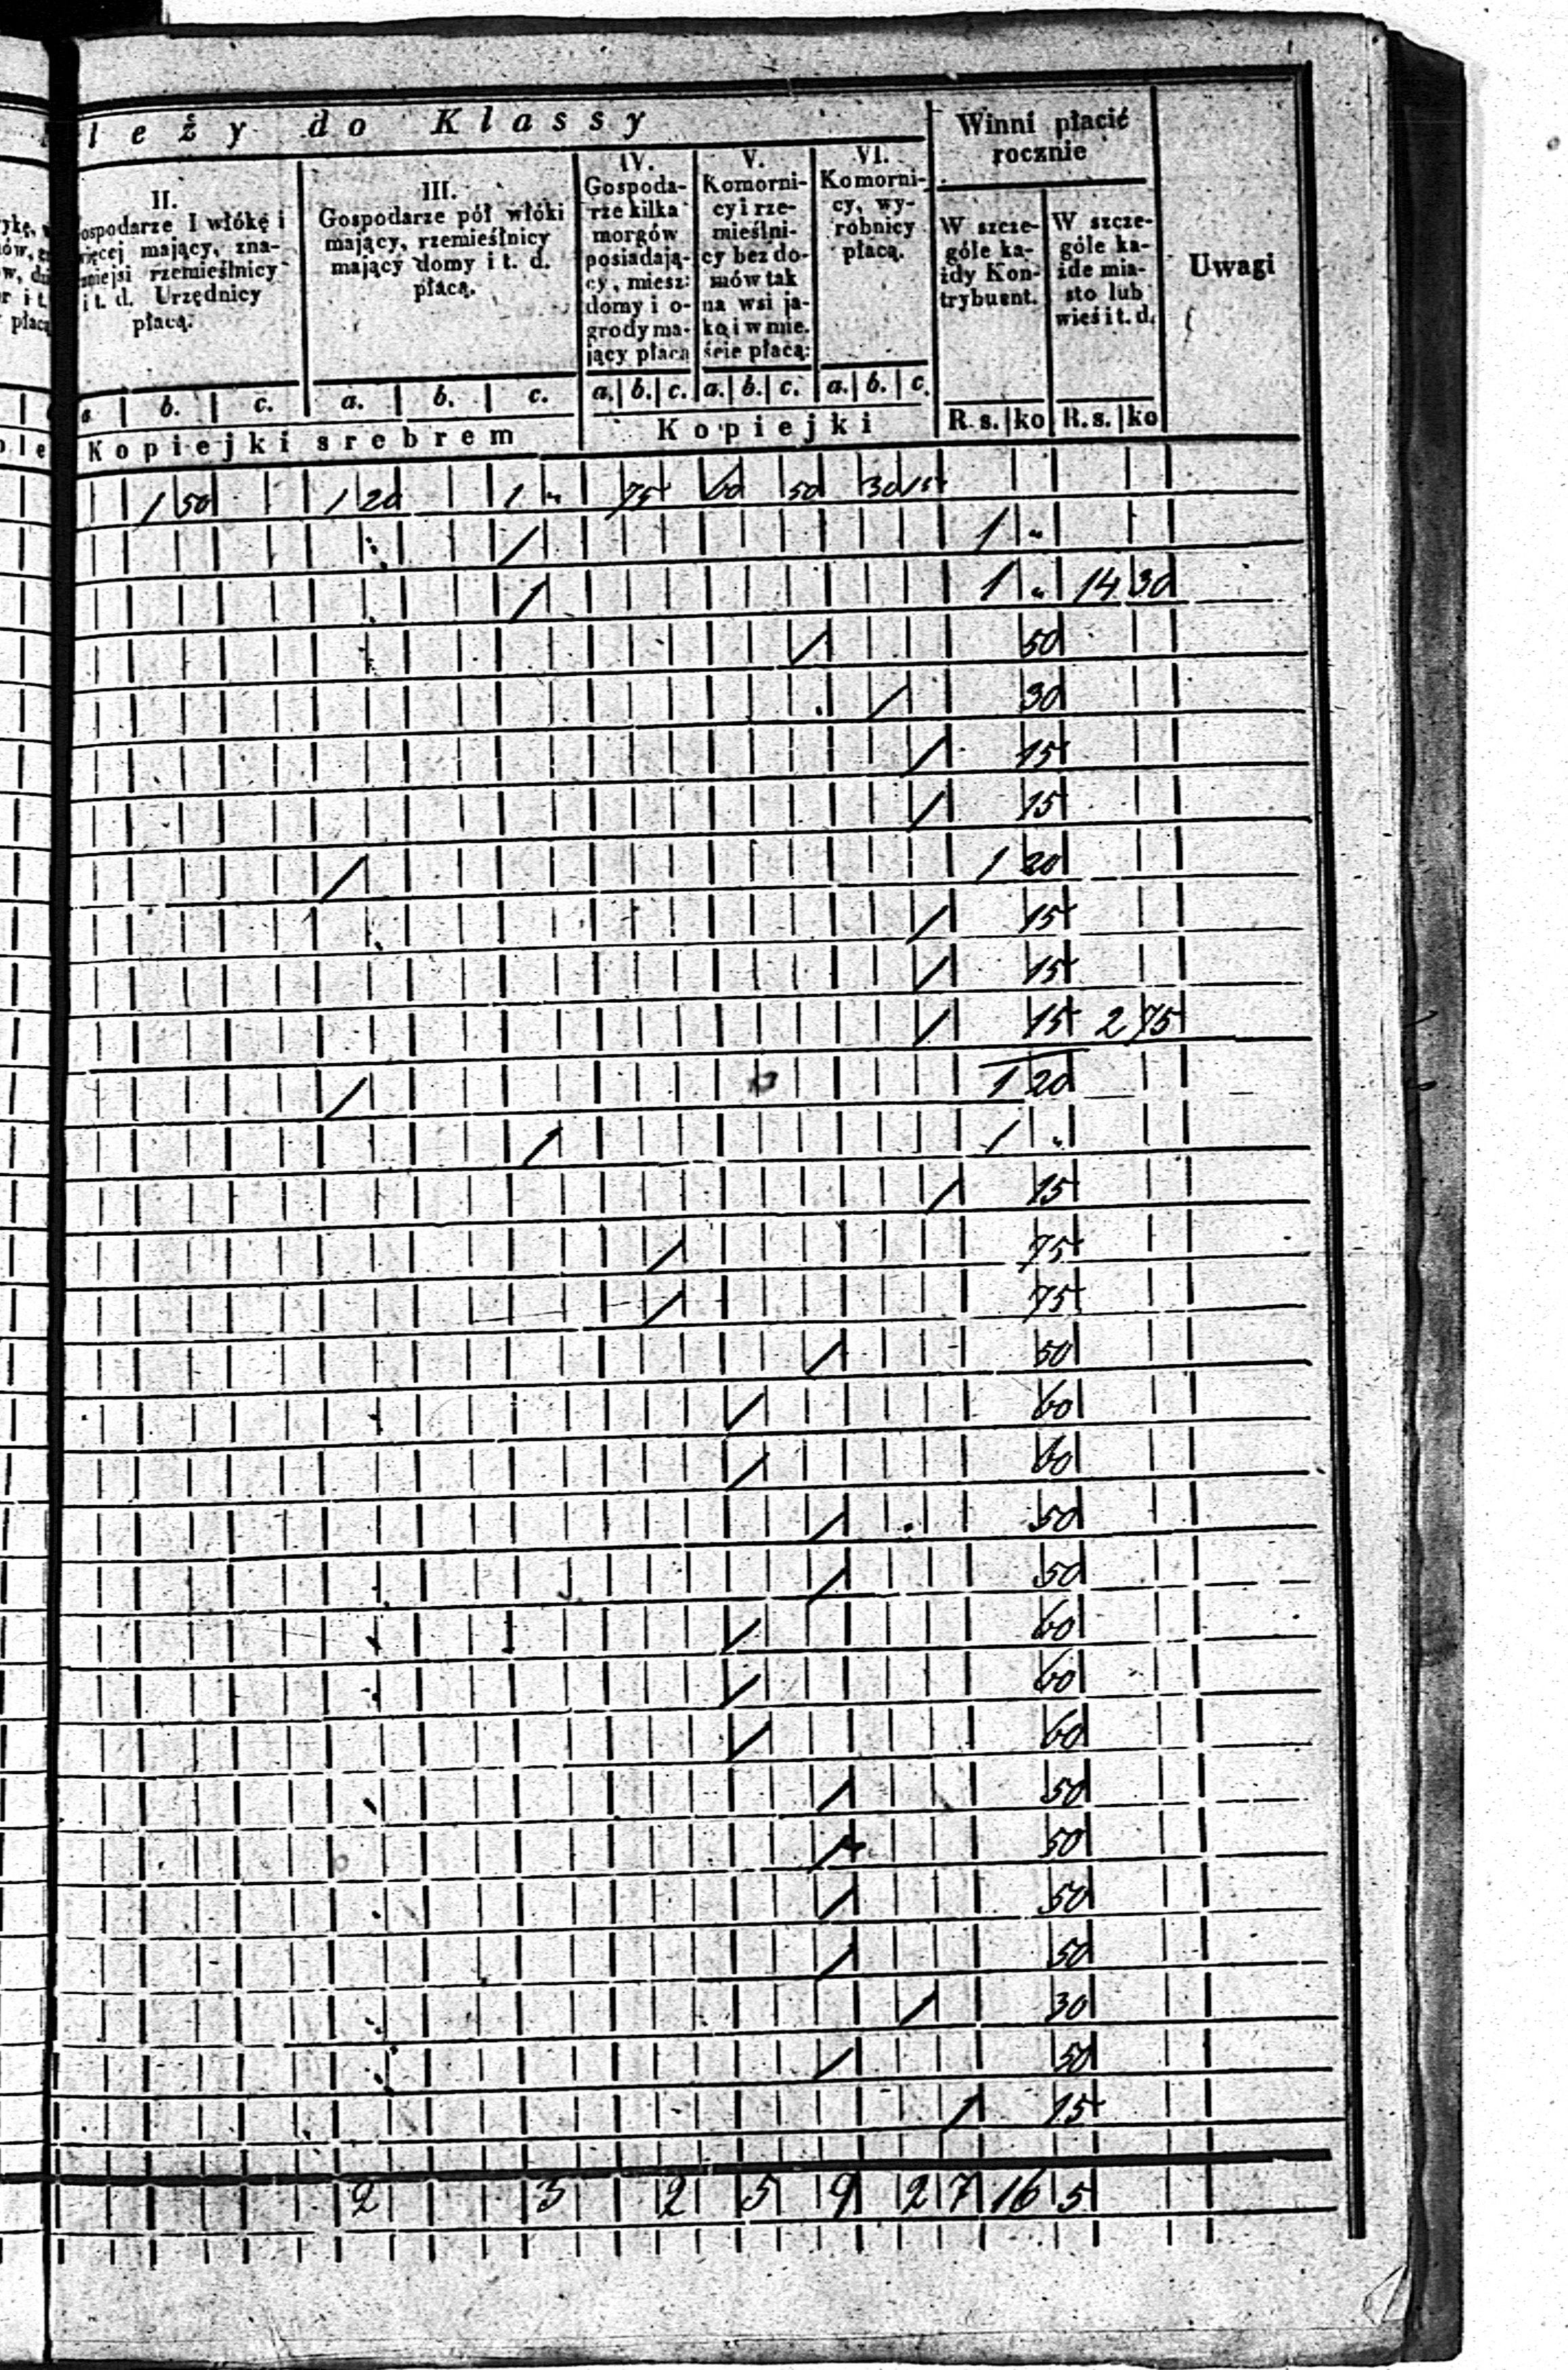 leży do Klassy
Winni płacić rocznie
Uwagi
II.
ospodarze I włókę i
więcej mający, zna-
mniejsi rzemieślnicy
i t. d. Urzędnicy
płacą.
III.
Gospodarze pół włóki
mający, rzemieślnicy
mający domy i t. d.
płacą.
IV.
Gospoda-
rze kilka
morgów
posiadają-
cy, miesz:
domy i o-
grody ma-
jący płacą
V.
Komorni-
cy i rze-
mieślni-
cy bez do-
mów tak
na wsi ja-
ko i w mie.
ście płacą:
VI.
Komorni-
cy, wy-
robnicy
płacą.
W szcze-
góle ka-
żdy Kon-
trybuent.
W szcze-
góle ka-
żde mia-
sto lub
wieś i t. d.
a. b. c. a. b. c. a. b. c. a. b. c. a. b. c.
Kopiejki srebrem Kopiejki R. s. ko R. s. ko
1 50 1 20 1 " 75 60 50 30 15
/ 1 "
/ 1 " 14 30
/ 50
/ 30
/ 15
/ 15
/ 1 20
/ 15
/ 15
/ 15 2 75
/ 1 20
/ 1 "
/ 15
/ 75
/ 75
/ 50
/ 60
/ 60
/ 50
/ 50
/ 60
/ 60
/ 60
/ 50
/ 50
/ 50
/ 50
/ 30
/ 50
/ 15
2 3 2 5 9 2 7 16 5